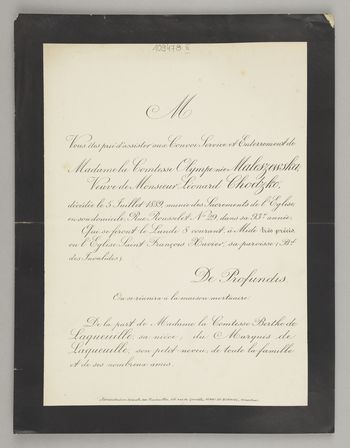 109478 II
M
Vous êtes prié d'assister aux Convoi Service et Enterrement de
Madame la Comtesse Olympe née Maleszewska,
Veuve de Monsieur Léonard Chodzko,
décédée le 5 Juillet 1889, munie des Sacrements de l'Eglise,
en son domicile, Rue Rousselet, Nº 29, dans sa 93e année;
Qui se feront le Lundi 8 courant, à Midi très précis,
en l'Eglise Saint François Xavier, sa paroisse; (Bd
des Invalides).
De Profundis.
On se réunira à la maison mortuaire.
De la part de Madame la Comtesse Berthe de
Laqueuille, sa nièce, du Marquis de
Laqueuille, son petit-neveu, de toute la famille
et de ses nombreux amis.